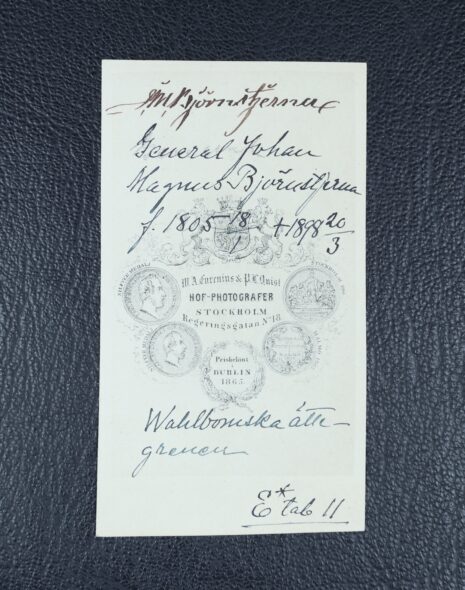 M. Björnstjerna
General Johan
Magnus Björnstjerna
f. 1805 18/1 † 1898 20/3
SILFVER MEDALJ
STOCKHOLM
W. A. Eurenius & P. L. Quist
HOF-PHOTOGRAFER
STOCKHOLM
Regeringsgatan No 18
MALMÖ
Prisbelönt
i
DUBLIN
1865.
Wahlbomska ätte-
grenen
E* tab 11